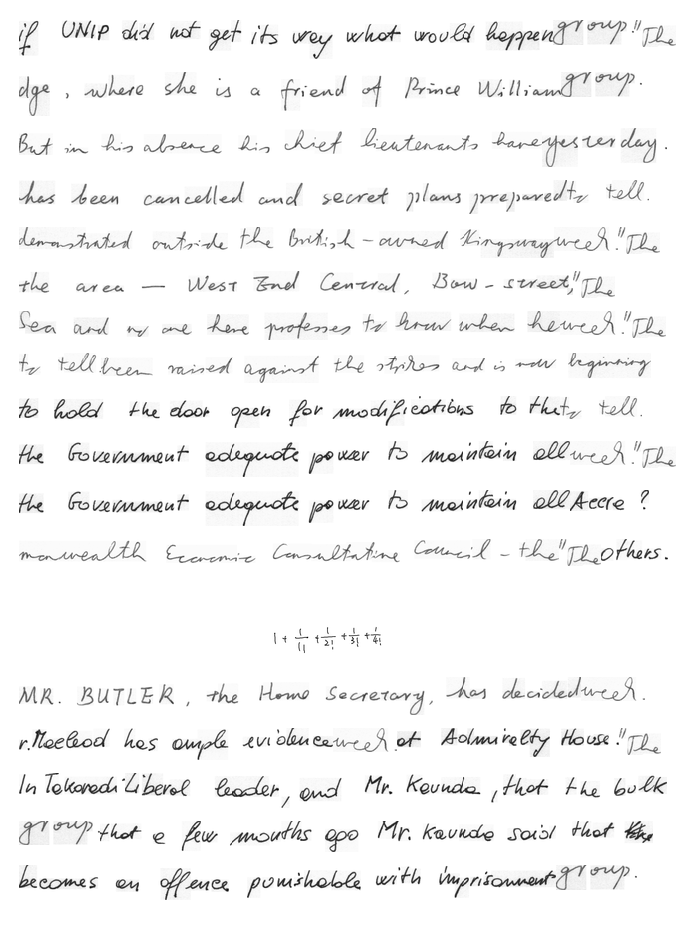 if UNIP did not get its way what would happen group!" The
dge, where she is a friend of Prince William group.
But in his absence his chief lieutenants have yesterday.
has been cancelled and secret plans prepared to tell.
demonstrated outside the British-owned Kingsway week." The
the area — West End Central, Bow-street," The
Sea and no one here professes to know when he week." The
to tell been raised against the strikes and is now beginning
to hold the door open for modifications to that to tell.
the Government adequate power to maintain all week." The
the Government adequate power to maintain all Accra?
monwealth Economic Consultative Council - the "The Others.
1 + 1/1! + 1/2! + 1/3! + 1/4!
MR. BUTLER, the Home Secretary, has decided week.
r. Macleod has ample evidence week at Admiralty House." The
In Takoradi Liberal leader, and Mr. Kaunda, that the bulk
group that a few months ago Mr. Kaunda said that
becomes an offence punishable with imprisonment group.